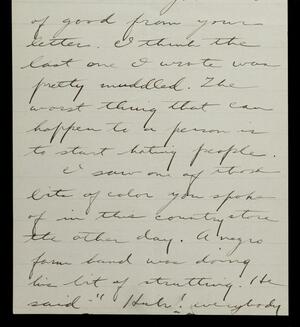 of good from your
letter. I think the
last one I wrote was
pretty muddled. The
worst thing that can
happen to a person is
to start hating people.
I saw one of those
bits of color you spoke
of in this country store
the other day. A negro
farm hand was doing
his bit of strutting. He
said - " Huh! everybody